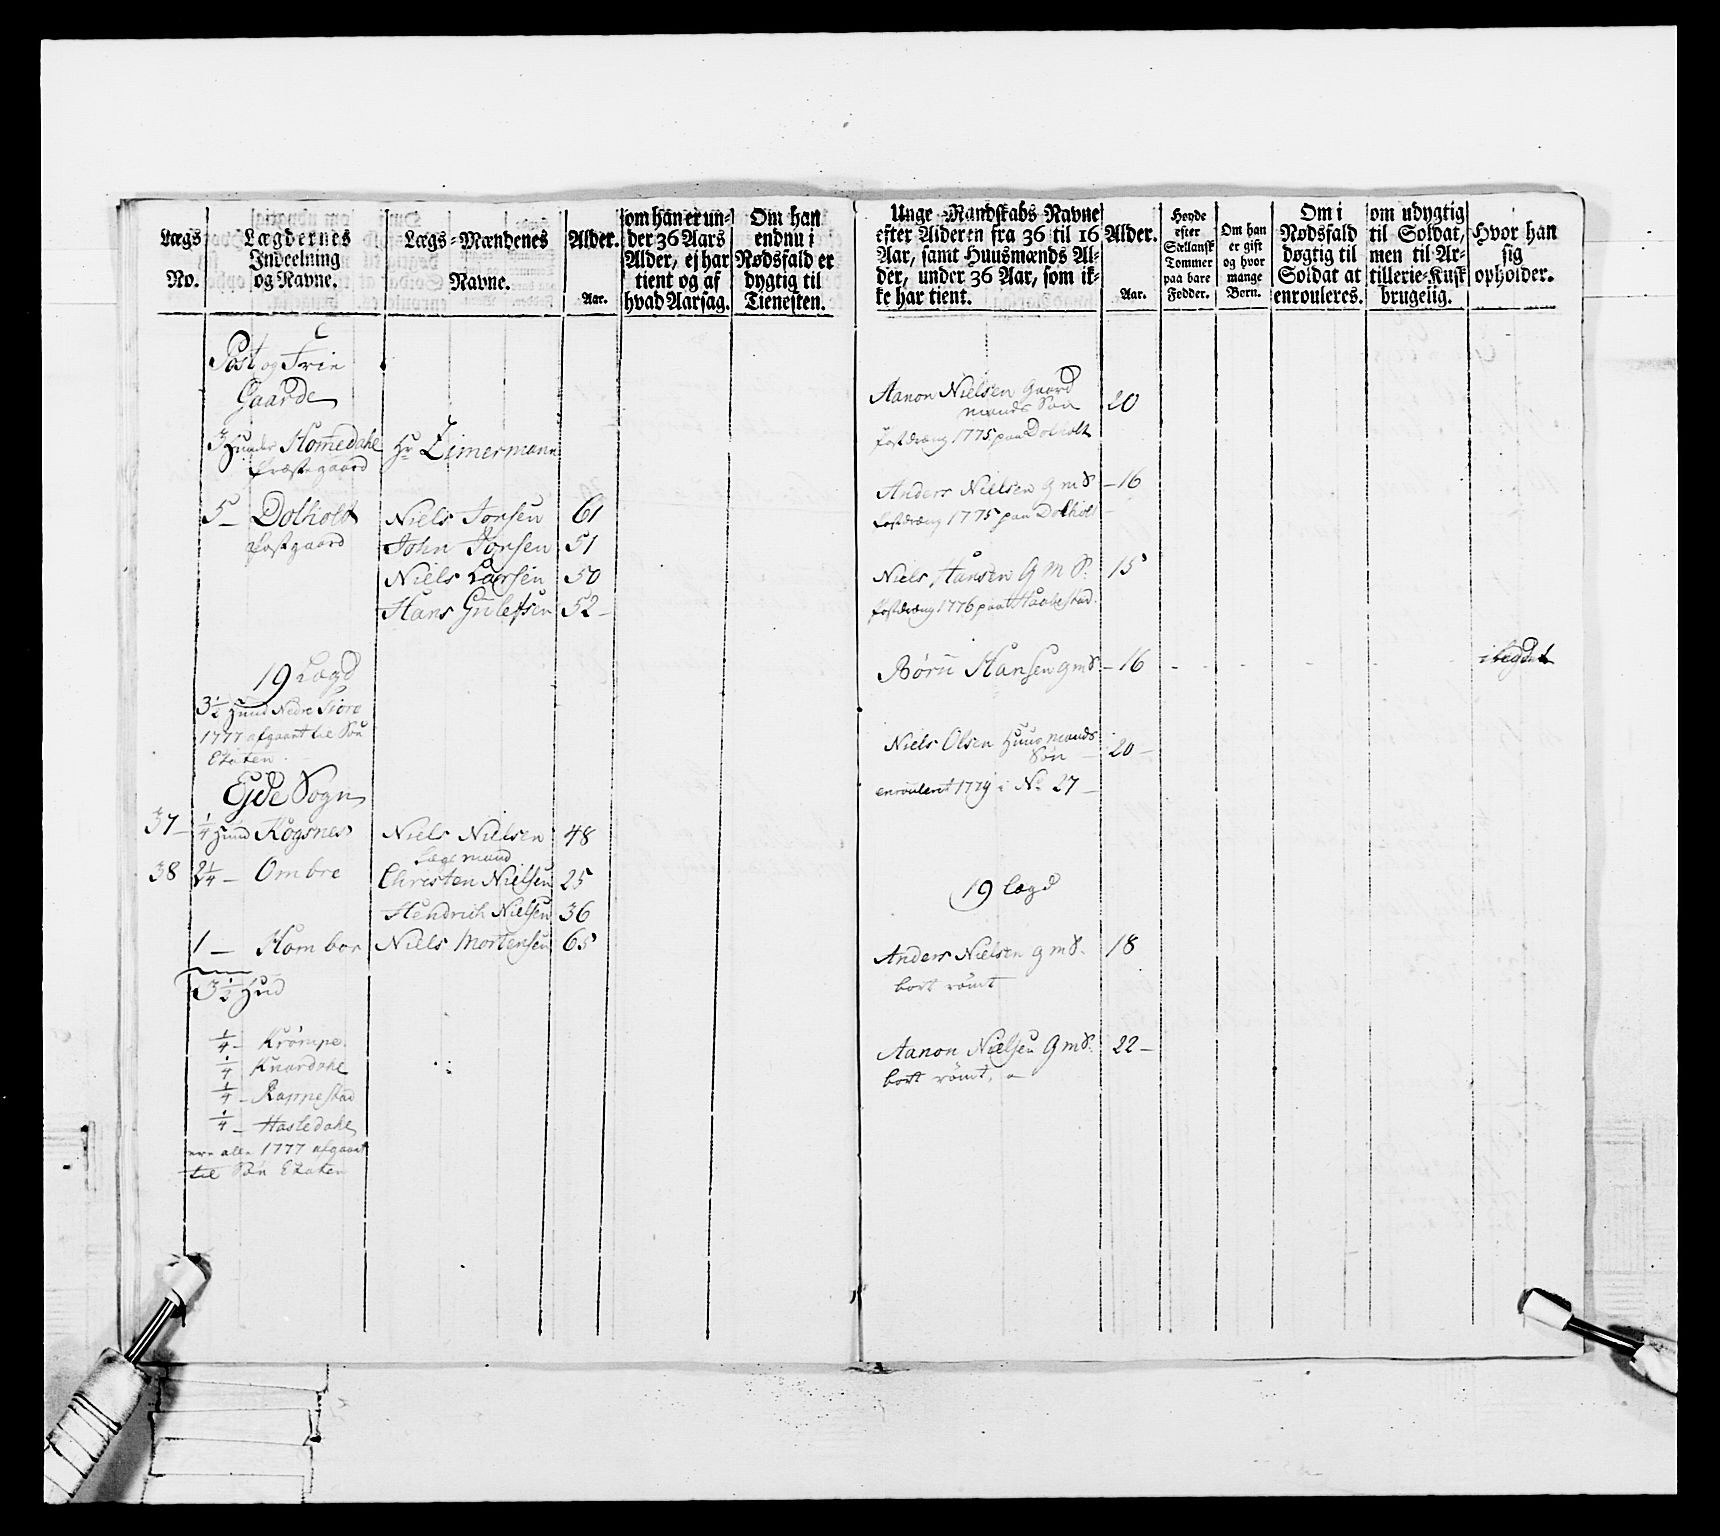 Lægs
No.
Lægdernes
Indeelning
og Navne.
Lægs-Mændenes
Navne.
Alder.
Aar.
om han er un-
der 36 Aars
Alder, ej har
tient og af
hvad Aarsag.
Om han
endnu i
Nødsfald er
dygtig til
Tienesten.
Post og Frie
Gaarde
3 Hunder Homedahl Hr Zimermann
Præstegaard
5 - Dolholt Niels Jonsen 61
Postgaard John Jonsen 51
Niels Larsen 50
Hans Gulefsen 52 -
19 Lægd
3 1/2 Hund Nedre Fiore
1777 afgaaet til Søe
Etaten.
Ejde Sogn
37 - 1/4 Hund Kogsnes Niels Nielsen 48
Lægsmand
38 2 1/4 - Ombre Christen Nielsen 25
Hendrich Nielsen 36
1 - Hombor Niels Mortensen 65
3 1/2 Hud
1/4 - Krömpe
1/4 Knardahl
1/4 - Rappestad
1/4 - Hasledahl
ere alle 1777 afgaaet
til Søe Etaten
Unge Mandskabs Navne
efter Alderen fra 36 til 16
Aar, samt Huusmænds Al-
der, under 36 Aar, som ik-
ke har tient.
Alder.
Aar.
Høyde
efter
Siællansk
Tommer
paa bare
Fødder.
Om han
er gift
og hvor
mange
Børn.
Om i
Nødsfald
døgtig til
Soldat at
enrouleres.
om udygtig
til Soldat,
men til Ar-
tillerie-Kusk
brugelig.
Hvor han
sig
opholder.
Aanon Nielsen Gaard
mands Søn 20
Postdreng 1775 paa Dolholt
Anders Nielsen G M S. - 16
Postdreng 1775 paa Dolholt
Niels Hansen G M S. 15
Postdreng 1776 paa Haabestad.
Börü Hansen G M S. - 16 - - - - - i Legdet
Niels Olsen Huusmands
Søn - 20 -
enroulerit 1779 i No 27 -
19 Lægd
Anders Nielsen G M S. 18
bort römt
Aanon Nielsen G M S. 22 -
bort römt, -